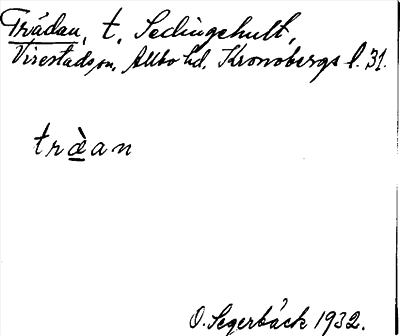 Trädan, t. Sedingehult,
Virestads sn, Allbo hd. Kronobergs l. 31.
træ̀an
O. Segerbäck 1932.